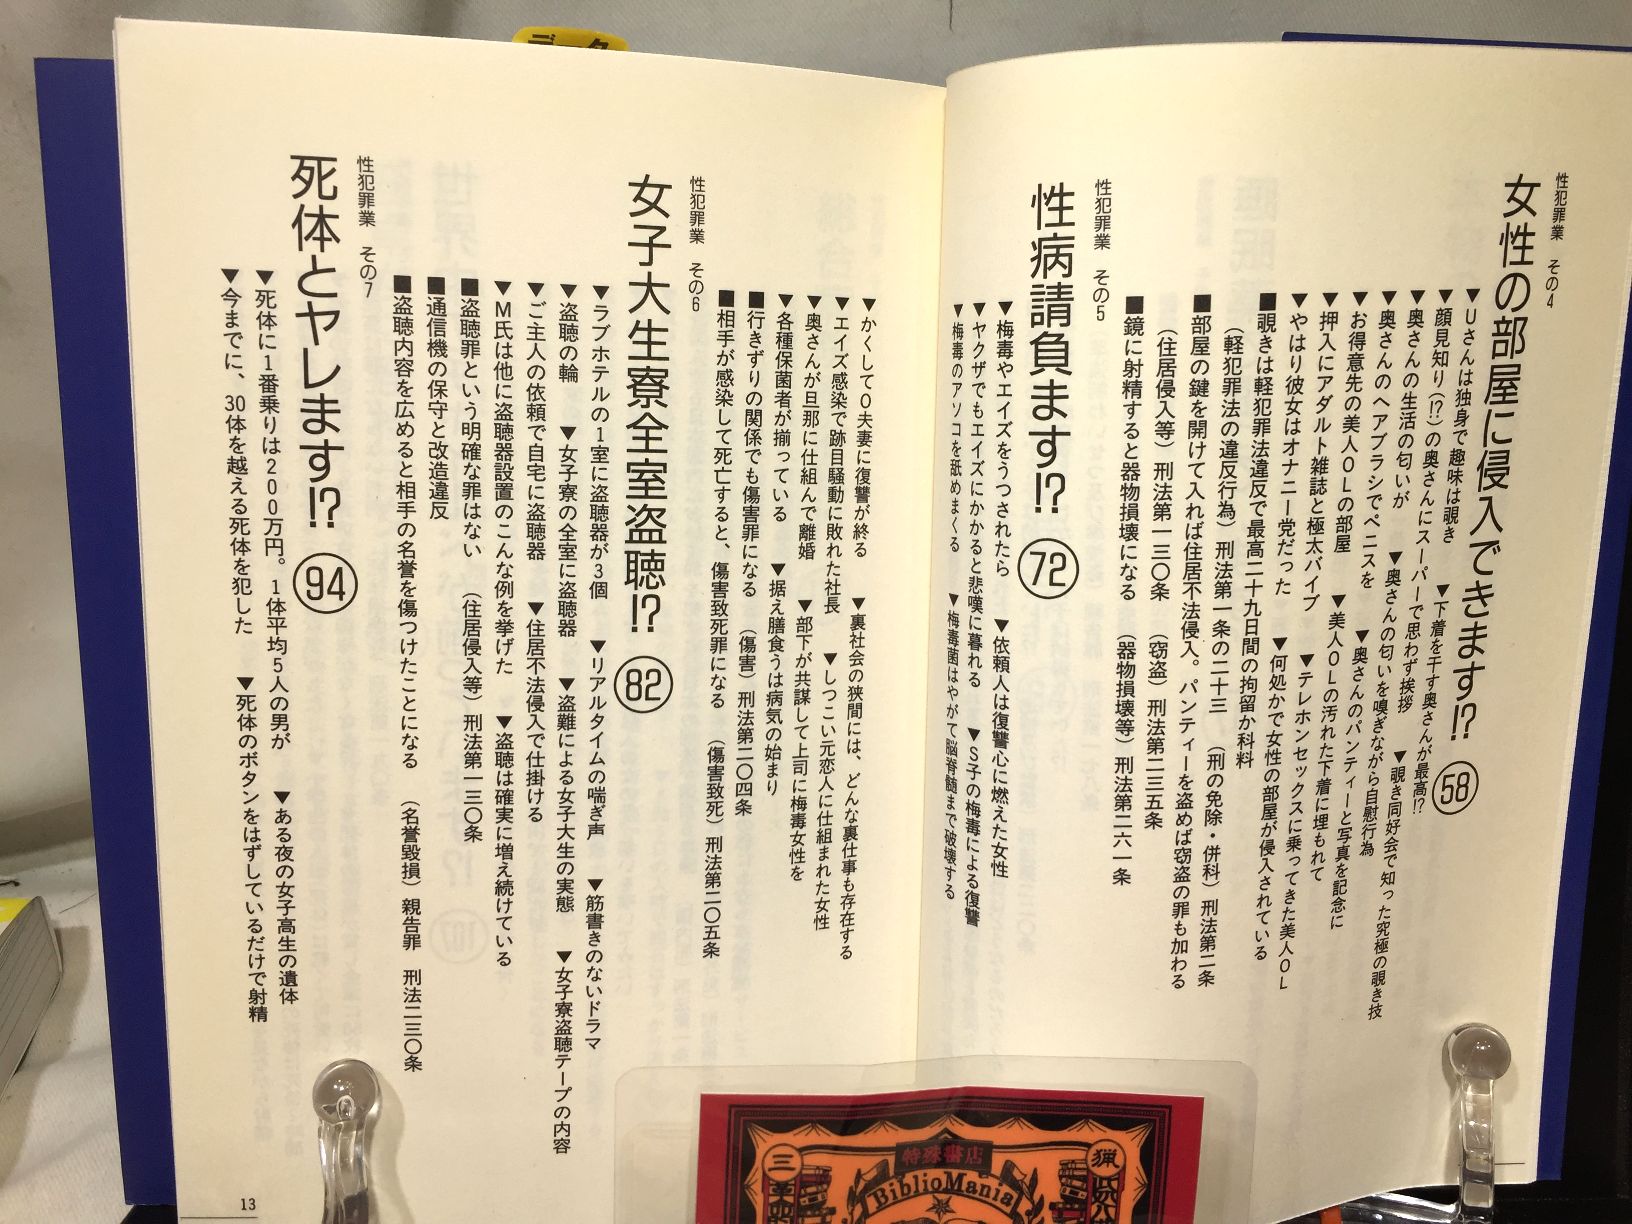 性犯罪業　その4
女性の部屋に侵入できます!? 58
▼Uさんは独身で趣味は覗き　▼下着を干す奥さんが最高!?
▼顔見知り(!?)の奥さんにスーパーで思わず挨拶　▼覗き同好会で知った究極の覗き技
▼奥さんの生活の匂いが　▼奥さんの匂いを嗅ぎながら自慰行為
▼奥さんのヘアブラシでペニスを　▼奥さんのパンティーと写真を記念に
▼お得意先の美人OLの部屋　▼美人OLの汚れた下着に埋もれて
▼押入にアダルト雑誌と極太バイブ　▼テレホンセックスに乗ってきた美人OL
▼やはり彼女はオナニー党だった　▼何処かで女性の部屋が侵入されている
■覗きは軽犯罪法違反で最高二十九日間の拘留か科料
（軽犯罪法の違反行為）刑法第一条の二十三　（刑の免除・併科）刑法第二条
■部屋の鍵を開けて入れば住居不法侵入。パンティーを盗めば窃盗の罪も加わる
（住居侵入等）刑法第一三〇条　（窃盗）刑法第二三五条
■鏡に射精すると器物損壊になる　（器物損壊等）刑法第二六一条
性犯罪業　その5
性病請負ます!? 72
▼梅毒やエイズをうつされたら　▼依頼人は復讐心に燃えた女性
▼ヤクザでもエイズにかかると悲嘆に暮れる　▼S子の梅毒による復讐
▼梅毒のアソコを舐めまくる　▼梅毒菌はやがて脳脊髄まで破壊する
▼かくしてO夫妻に復讐が終る　▼裏社会の狭間には、どんな裏仕事も存在する
▼エイズ感染で跡目騒動に敗れた社長　▼しつこい元恋人に仕組まれた女性
▼奥さんが旦那に仕組んで離婚　▼部下が共謀して上司に梅毒女性を
▼各種保菌者が揃っている　▼据え膳食うは病気の始まり
■行きずりの関係でも傷害罪になる　（傷害）刑法第二〇四条
■相手が感染して死亡すると、傷害致死罪になる　（傷害致死）刑法第二〇五条
性犯罪業　その6
女子大生寮全室盗聴!? 82
▼ラブホテルの1室に盗聴器が3個　▼リアルタイムの喘ぎ声　▼筋書きのないドラマ
▼盗聴の輪　▼女子寮の全室に盗聴器　▼盗難による女子大生の実態　▼女子寮盗聴テープの内容
▼ご主人の依頼で自宅に盗聴器　▼住居不法侵入で仕掛ける
▼M氏は他に盗聴器設置のこんな例を挙げた　▼盗聴は確実に増え続けている
■盗聴罪という明確な罪はない　（住居侵入等）刑法第一三〇条
■通信機の保守と改造違反
■盗聴内容を広めると相手の名誉を傷つけたことになる　（名誉毀損）親告罪　刑法二三〇条
性犯罪業　その7
死体とヤレます!? 94
▼死体に1番乗りは200万円。1体平均5人の男が　▼ある夜の女子高生の遺体
▼今までに、30体を越える死体を犯した　▼死体のボタンをはずしているだけで射精
13
データ
特殊書店
BiblioMania
三
猟